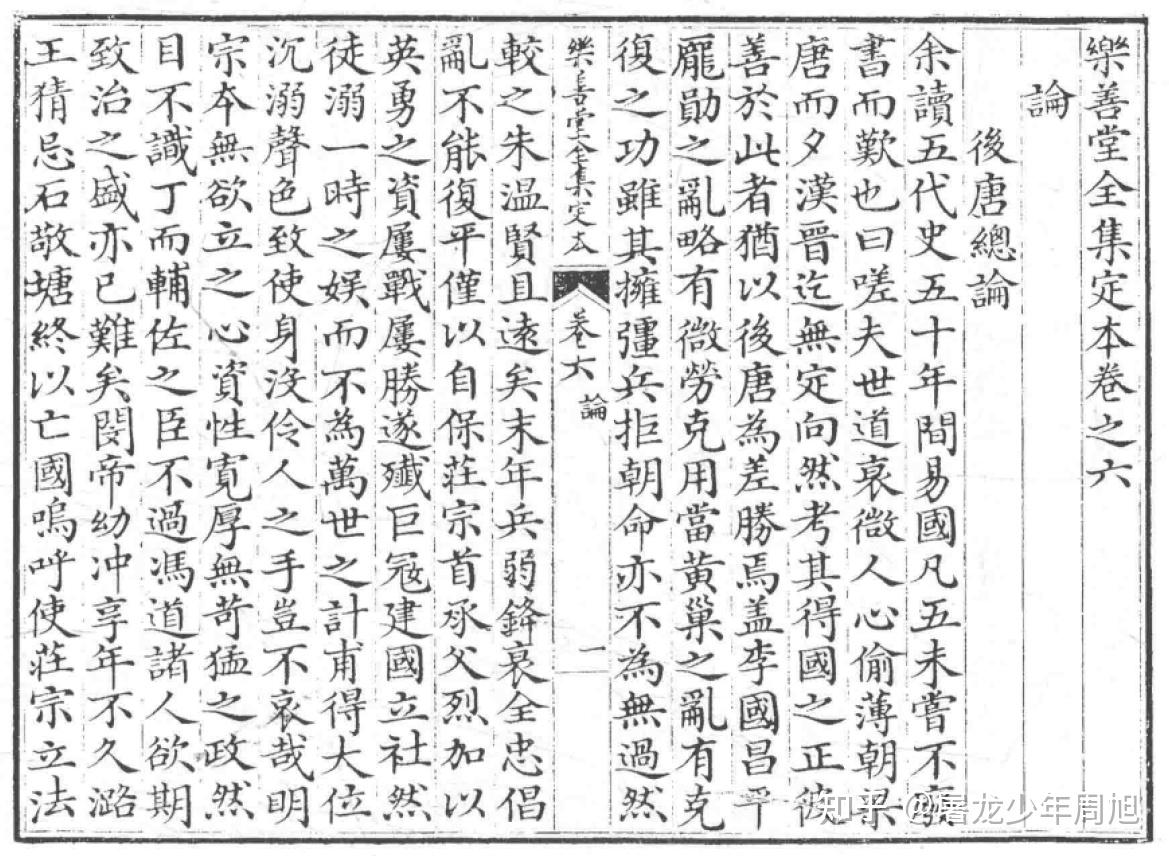 樂善堂全集定本卷之六
論
後唐總論
余讀五代史五十年間易國凡五未嘗不廢
書而歎也曰嗟夫世道衰微人心偷薄朝梁
唐而夕漢晉迄無定向然考其得國之正彼
善於此者猶以後唐為差勝焉盖李國昌平
龐勛之亂略有微勞克用當黃巢之亂有克
復之功雖其擁彊兵拒朝命亦不為無過然
樂善堂全集定本 卷六 論 一
較之朱温賢且遠矣末年兵弱鋒衰全忠倡
亂不能復平僅以自保莊宗首承父烈加以
英勇之資屢戰屢勝遂殲巨寇建國立社然
徒溺一時之娱而不為萬世之計甫得大位
沉溺聲色致使身沒伶人之手豈不哀哉明
宗本無欲立之心資性寛厚無苛猛之政然
目不識丁而輔佐之臣不過馮道諸人欲期
致治之盛亦已難矣閔帝幼冲享年不久潞
王猜忌石敬塘終以亡國嗚呼使莊宗立法
知乎 @屠龙少年周旭